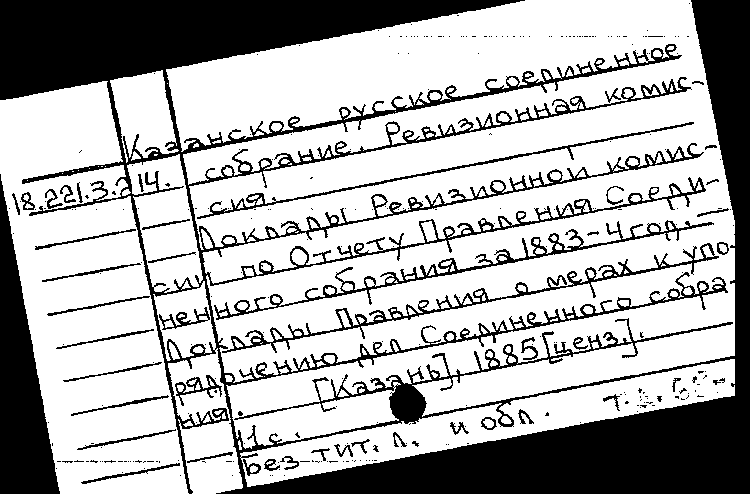 Казанское русское соединенное
18.221.3.214. собрание. Ревизионная комис-
сия.
Доклады Ревизионной комис-
сии по Отчету Правления Соеди-
ненного собрания за 1883-4 год. –
Доклады Правления о мерах к упо-
рядочению дел Соединенного собра-
ния. [Казань], 1885 [ценз.].
11 с.
Без тит. л. и обл.